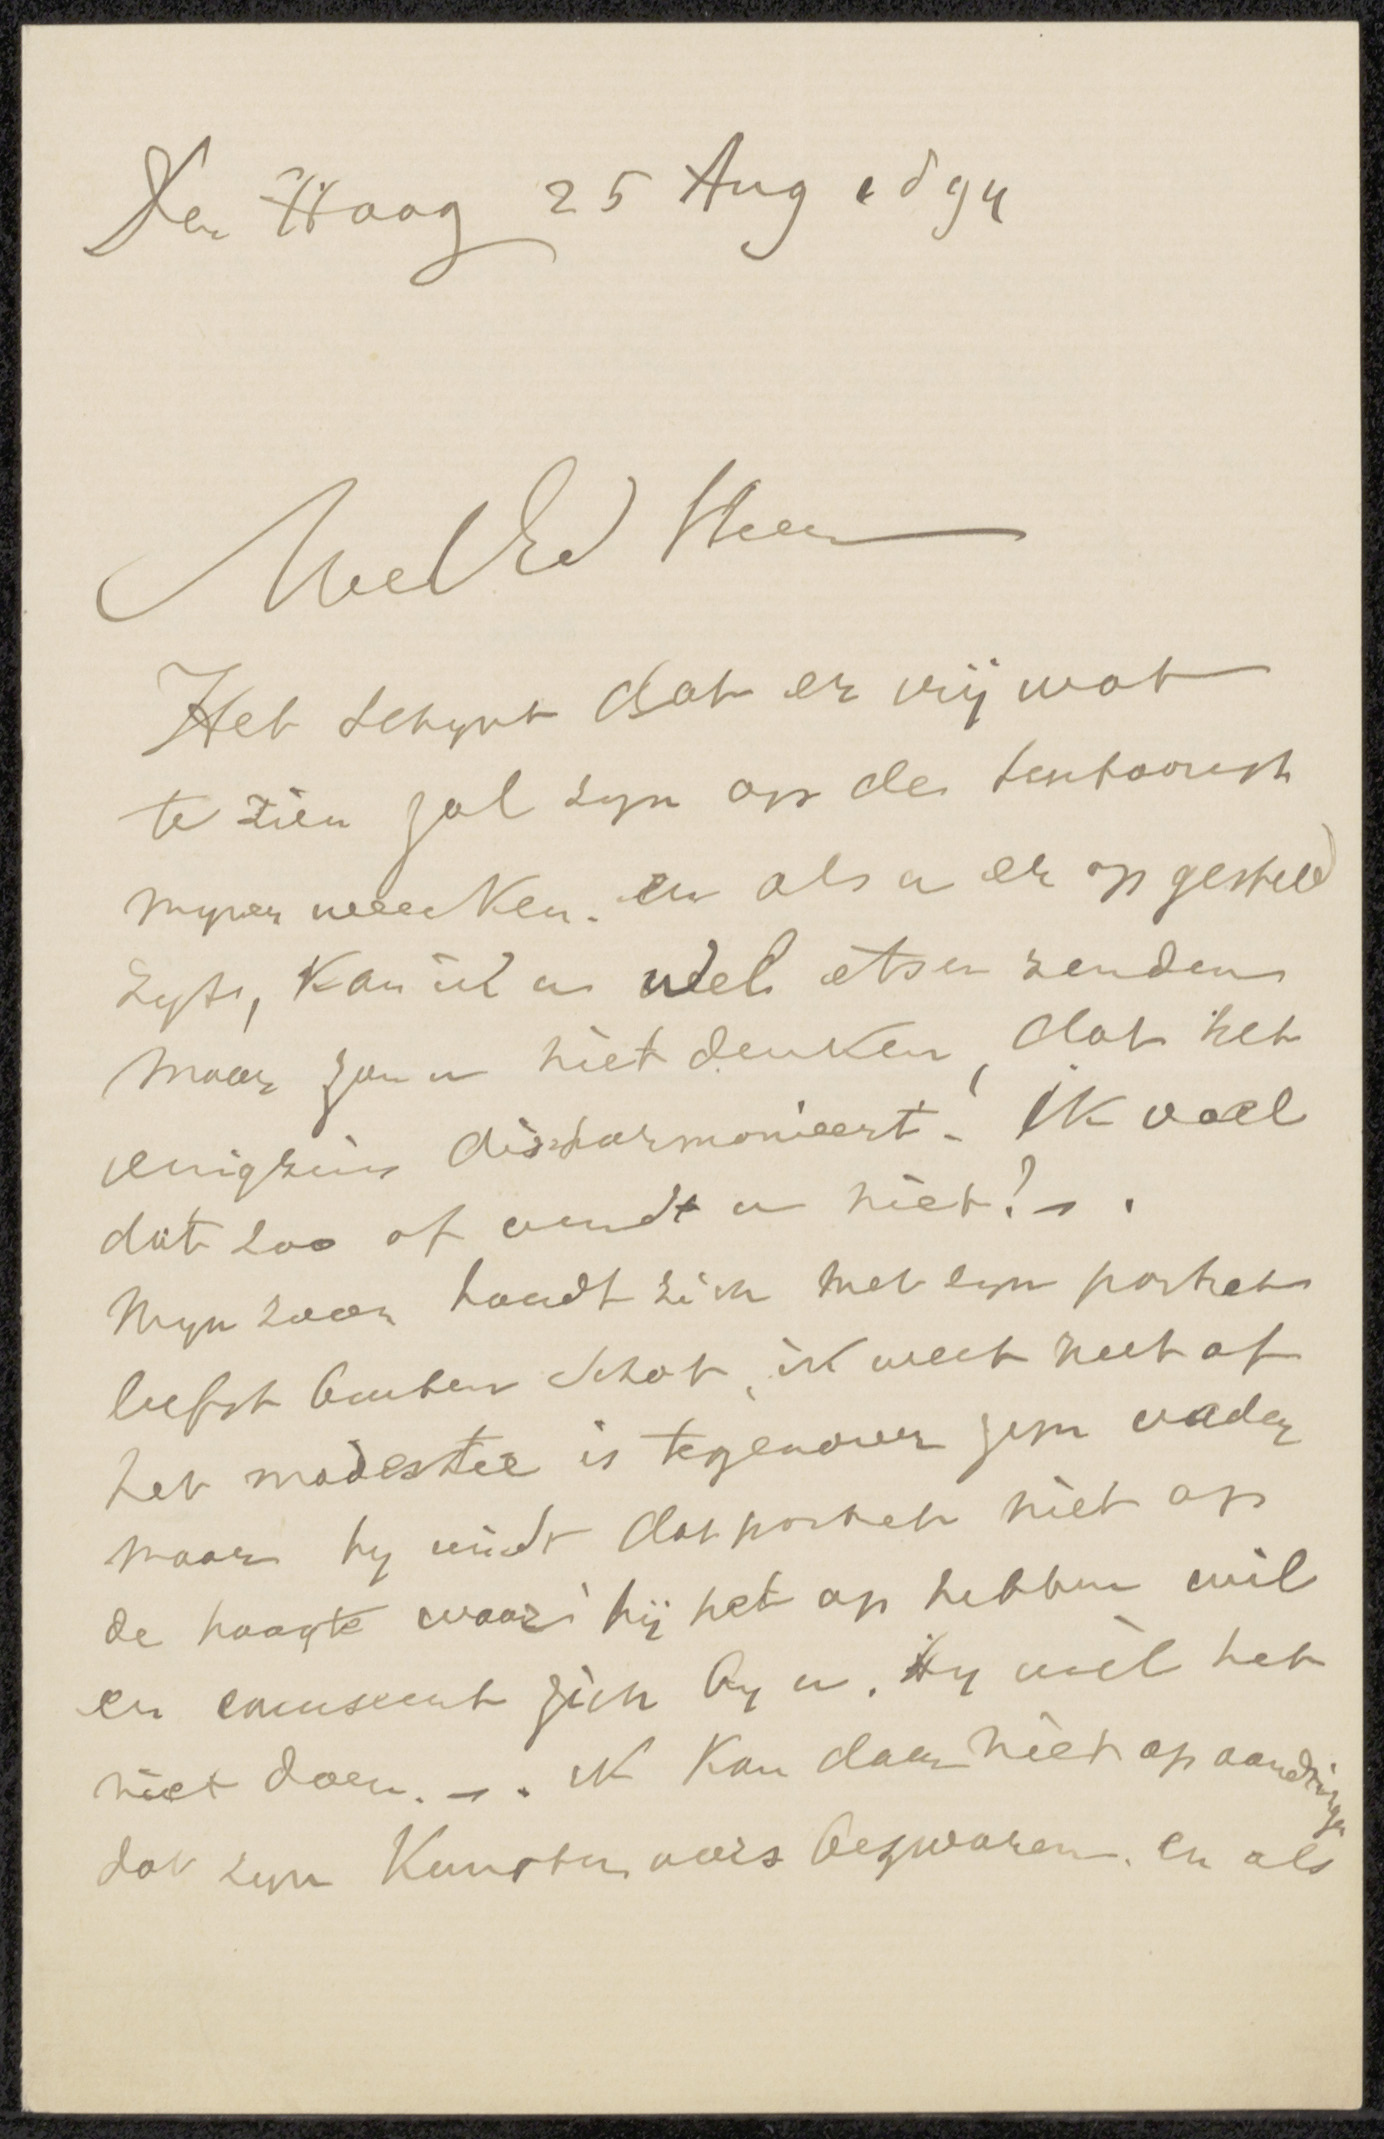 Den Haag 25 Aug 1894
WelEd Heer
Het schynt dat er vrij wat
te zien zal zyn op de tentoonst
myner werken. en als u er op gesteld
zyt, kan ik u wel etsen zenden
maar zou u niet denken, dat het
enigzins disharmonieert. Ik voel
dat zoo of vindt u niet! –.
Myn zoon houdt zich met zyn portret
liefst buiten schot, ik weet niet of
het modestie is tegenover zyn vader
maar hy vindt dat portret niet op
de hoogte waar hij het op hebben wil
en excuseert zich by u. Hy wil het
niet doen. –. ik kan daar niet op aandringen
dat zyn Kunstenaars bezwaren. en als